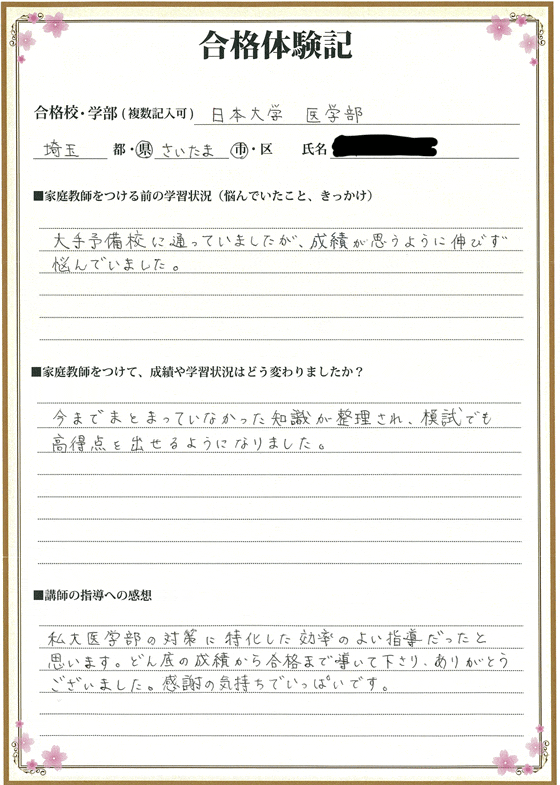 合格体験記
合格校・学部(複数記入可) 日本大学 医学部
埼玉 都・県 さいたま 市・区 氏名
■家庭教師をつける前の学習状況(悩んでいたこと、きっかけ)
大手予備校に通っていましたが、成績が思うように伸びず
悩んでいました。
■家庭教師をつけて、成績や学習状況はどう変わりましたか?
今までまとまっていなかった知識が整理され、模試でも
高得点を出せるようになりました。
■講師の指導への感想
私大医学部の対策に特化した効率のよい指導だったと
思います。どん底の成績から合格まで導いて下さり、ありがとう
ございました。感謝の気持ちでいっぱいです。